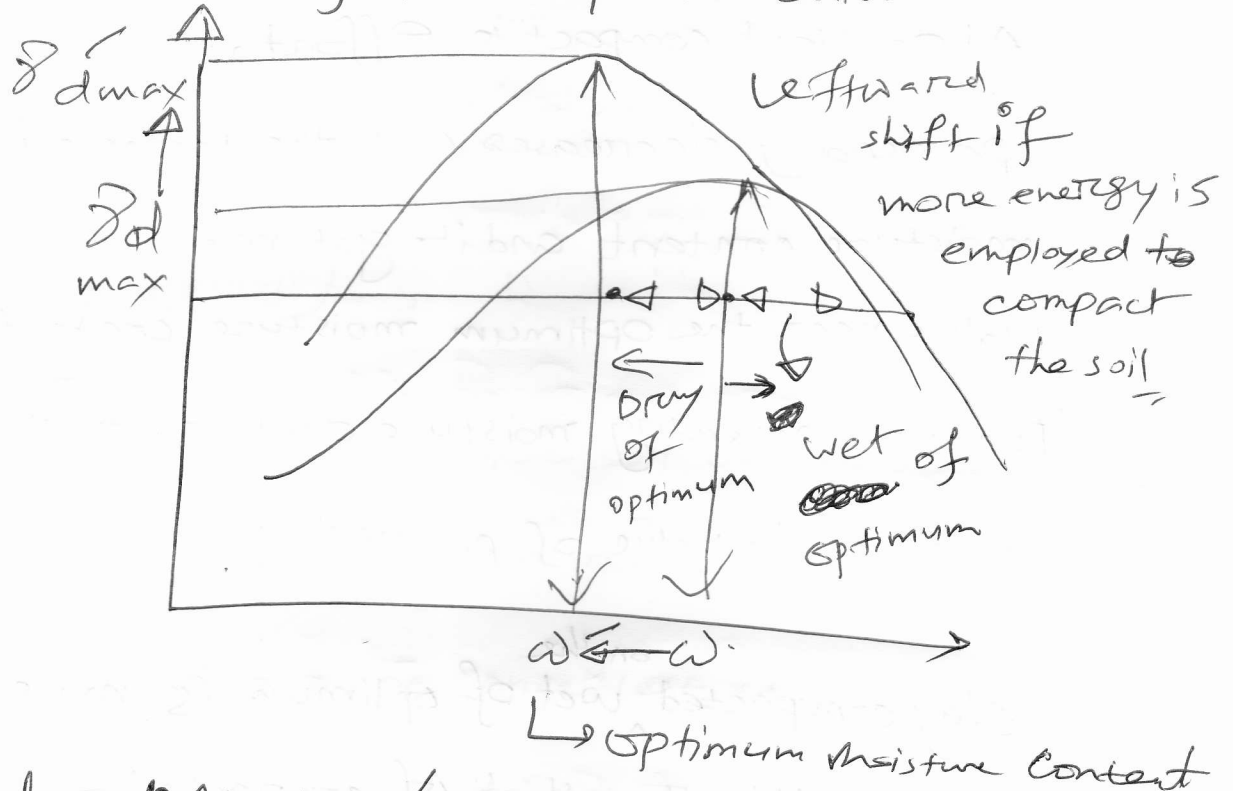 γ'd max
γd
max
Leftward
shift if
more energy is
employed to
compact
the soil
Dray
of
optimum
wet of
optimum
ω ← ω
optimum Moisture Content